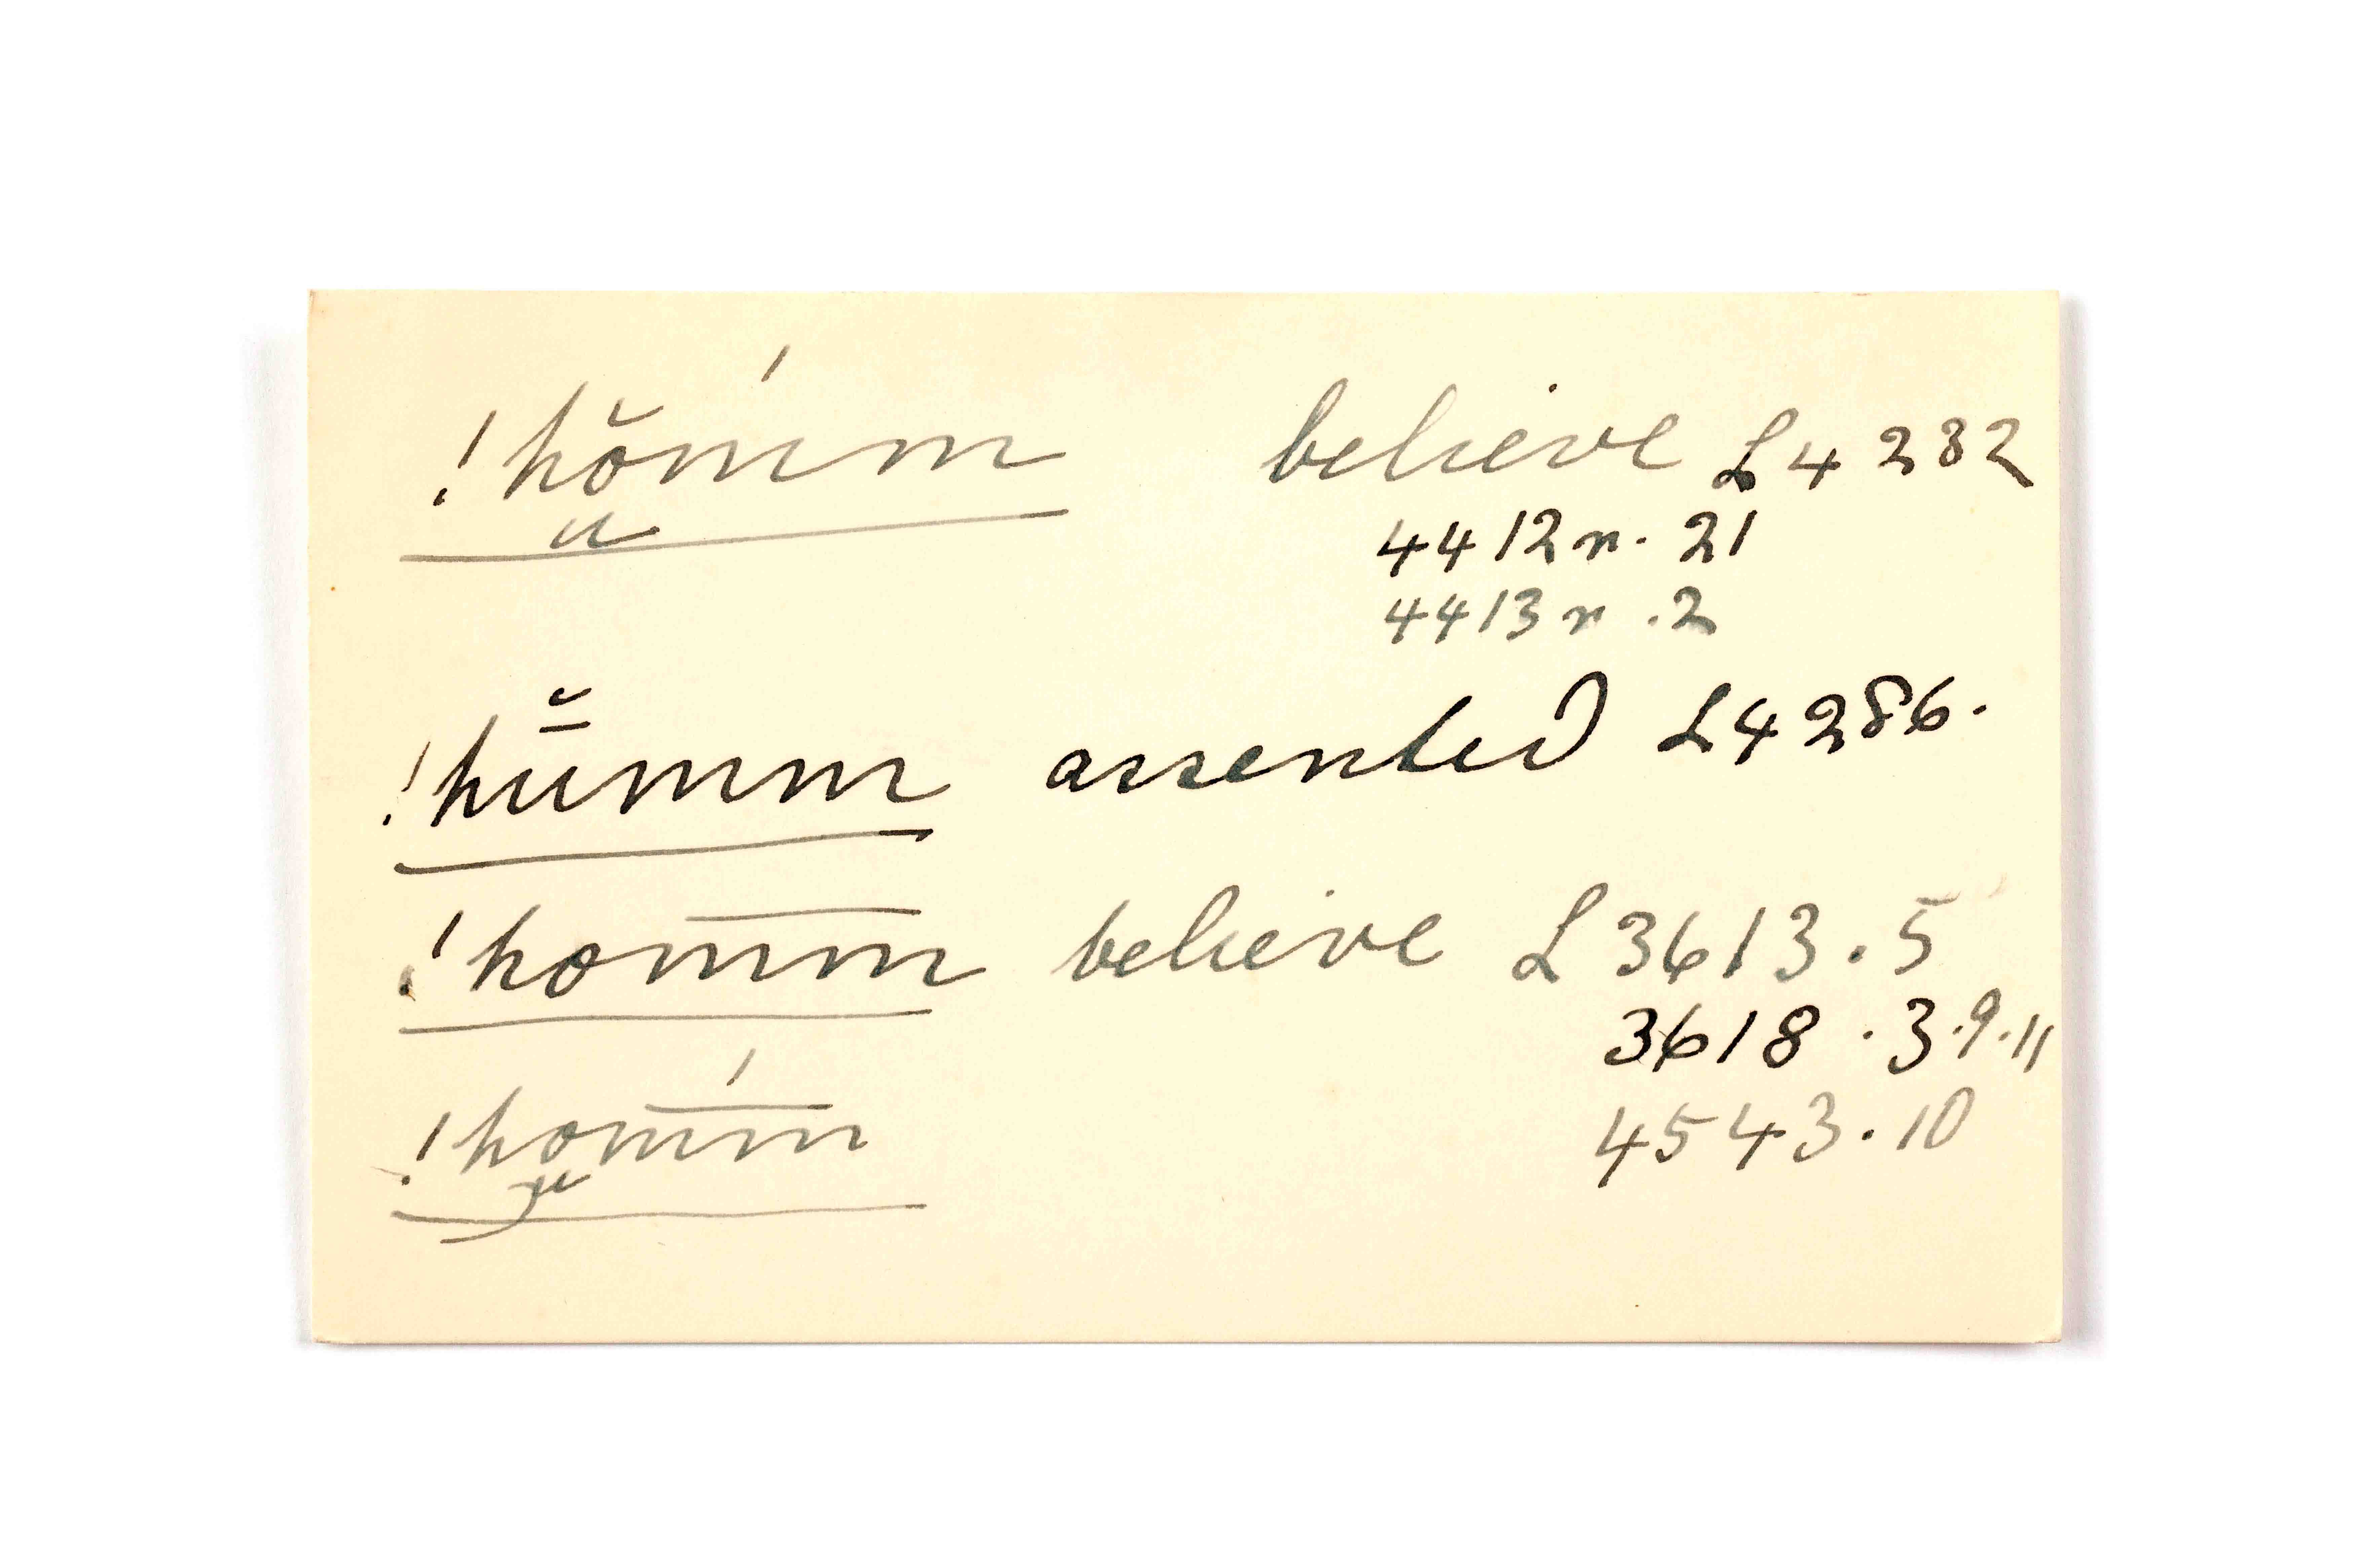 !hŏm̄́m believe L4232
u
4412 r. 21
4413 r .2
!hŭ̄mm assented L4286.
!hom̅m̅ believe L 3613.5
3618 .3.9.11
!hom̅́m̅ 4543.10
u